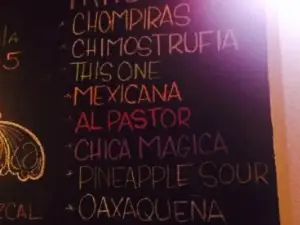 CHOMPIRAS
CHIMOSTRUFIA
THIS ONE
MEXICANA
AL PASTOR
CHICA MAGICA
PINEAPPLE SOUR
OAXAQUENA
5
ZCAL